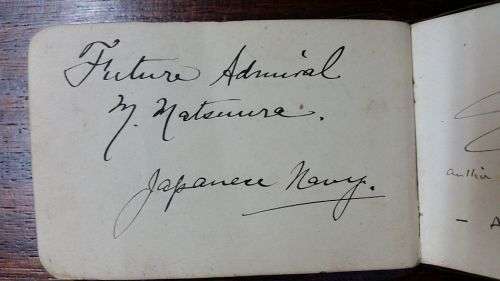 Future Admiral
M. Matsumura.
Japanese Navy.
author
- A